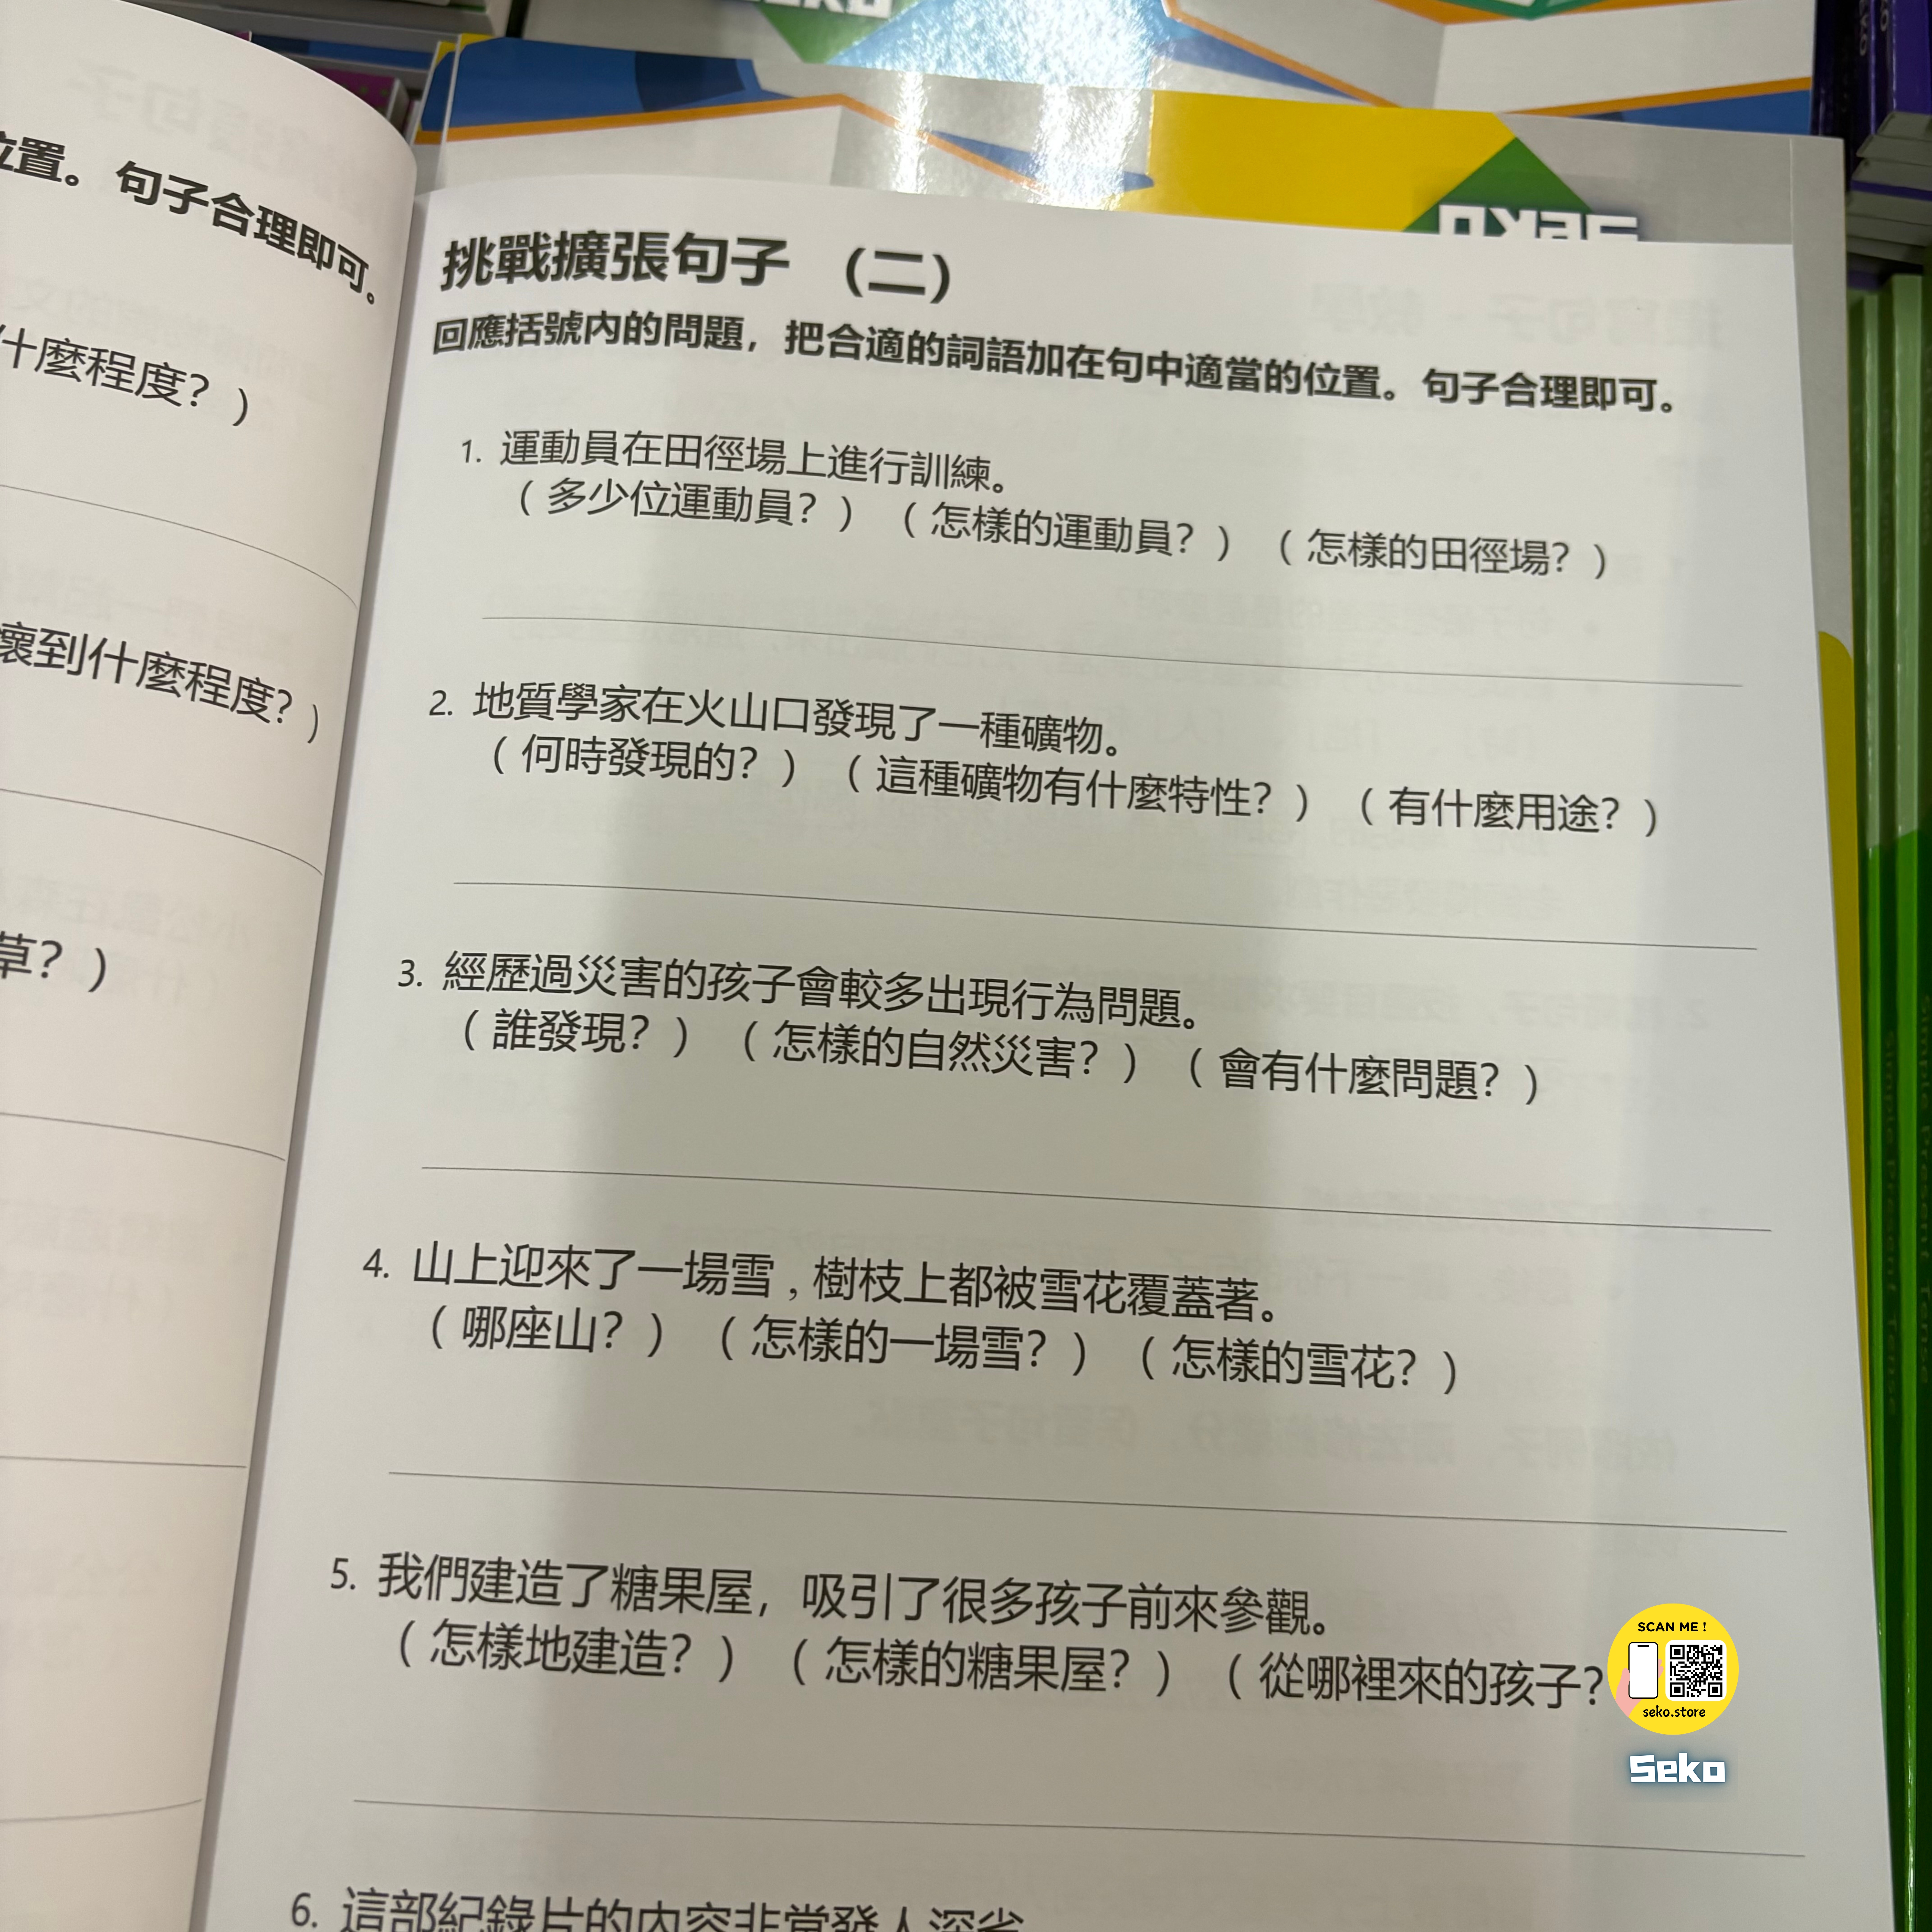 位置。句子合理即可。
什麼程度？）
壞到什麼程度？）
草？）
挑戰擴張句子 （二）
回應括號內的問題，把合適的詞語加在句中適當的位置。句子合理即可。
1. 運動員在田徑場上進行訓練。
（多少位運動員？）（怎樣的運動員？）（怎樣的田徑場？）
2. 地質學家在火山口發現了一種礦物。
（何時發現的？）（這種礦物有什麼特性？）（有什麼用途？）
3. 經歷過災害的孩子會較多出現行為問題。
（誰發現？）（怎樣的自然災害？）（會有什麼問題？）
4. 山上迎來了一場雪，樹枝上都被雪花覆蓋著。
（哪座山？）（怎樣的一場雪？）（怎樣的雪花？）
5. 我們建造了糖果屋，吸引了很多孩子前來參觀。
（怎樣地建造？）（怎樣的糖果屋？）（從哪裡來的孩子？
6. 這部紀錄片的內容非常發人深省
SCAN ME !
seko.store
Seko
Simple Present Tense